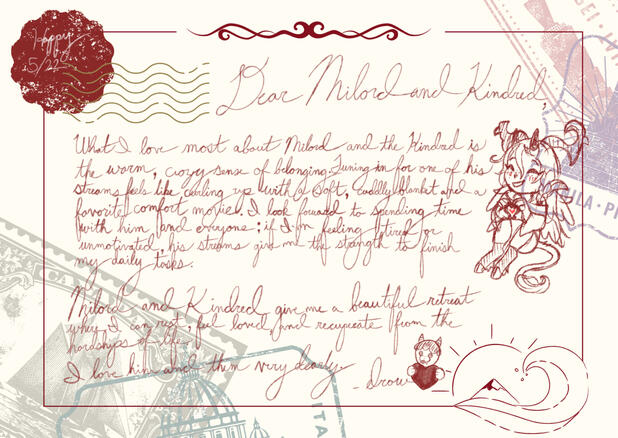 Happy
5/22
Dear Milord and Kindred,
What I love most about Milord and the Kindred is
the warm, cuozy sense of belonging. Tuning in for one of his
streams feels like curling up with a soft, cuddly blanket and a
favorite comfort movie. I look foward to spending time
with him and everyone; if I'm feeling tired or
unmotivated, his streams give me the strength to finish
my daily tasks.
Milord and Kindred give me a beautiful retreat
why I can rest, feel loved and recuperate from the
hardships of life.
I love him and them very dearly.
- Drow
SEI
ILA · P
TA